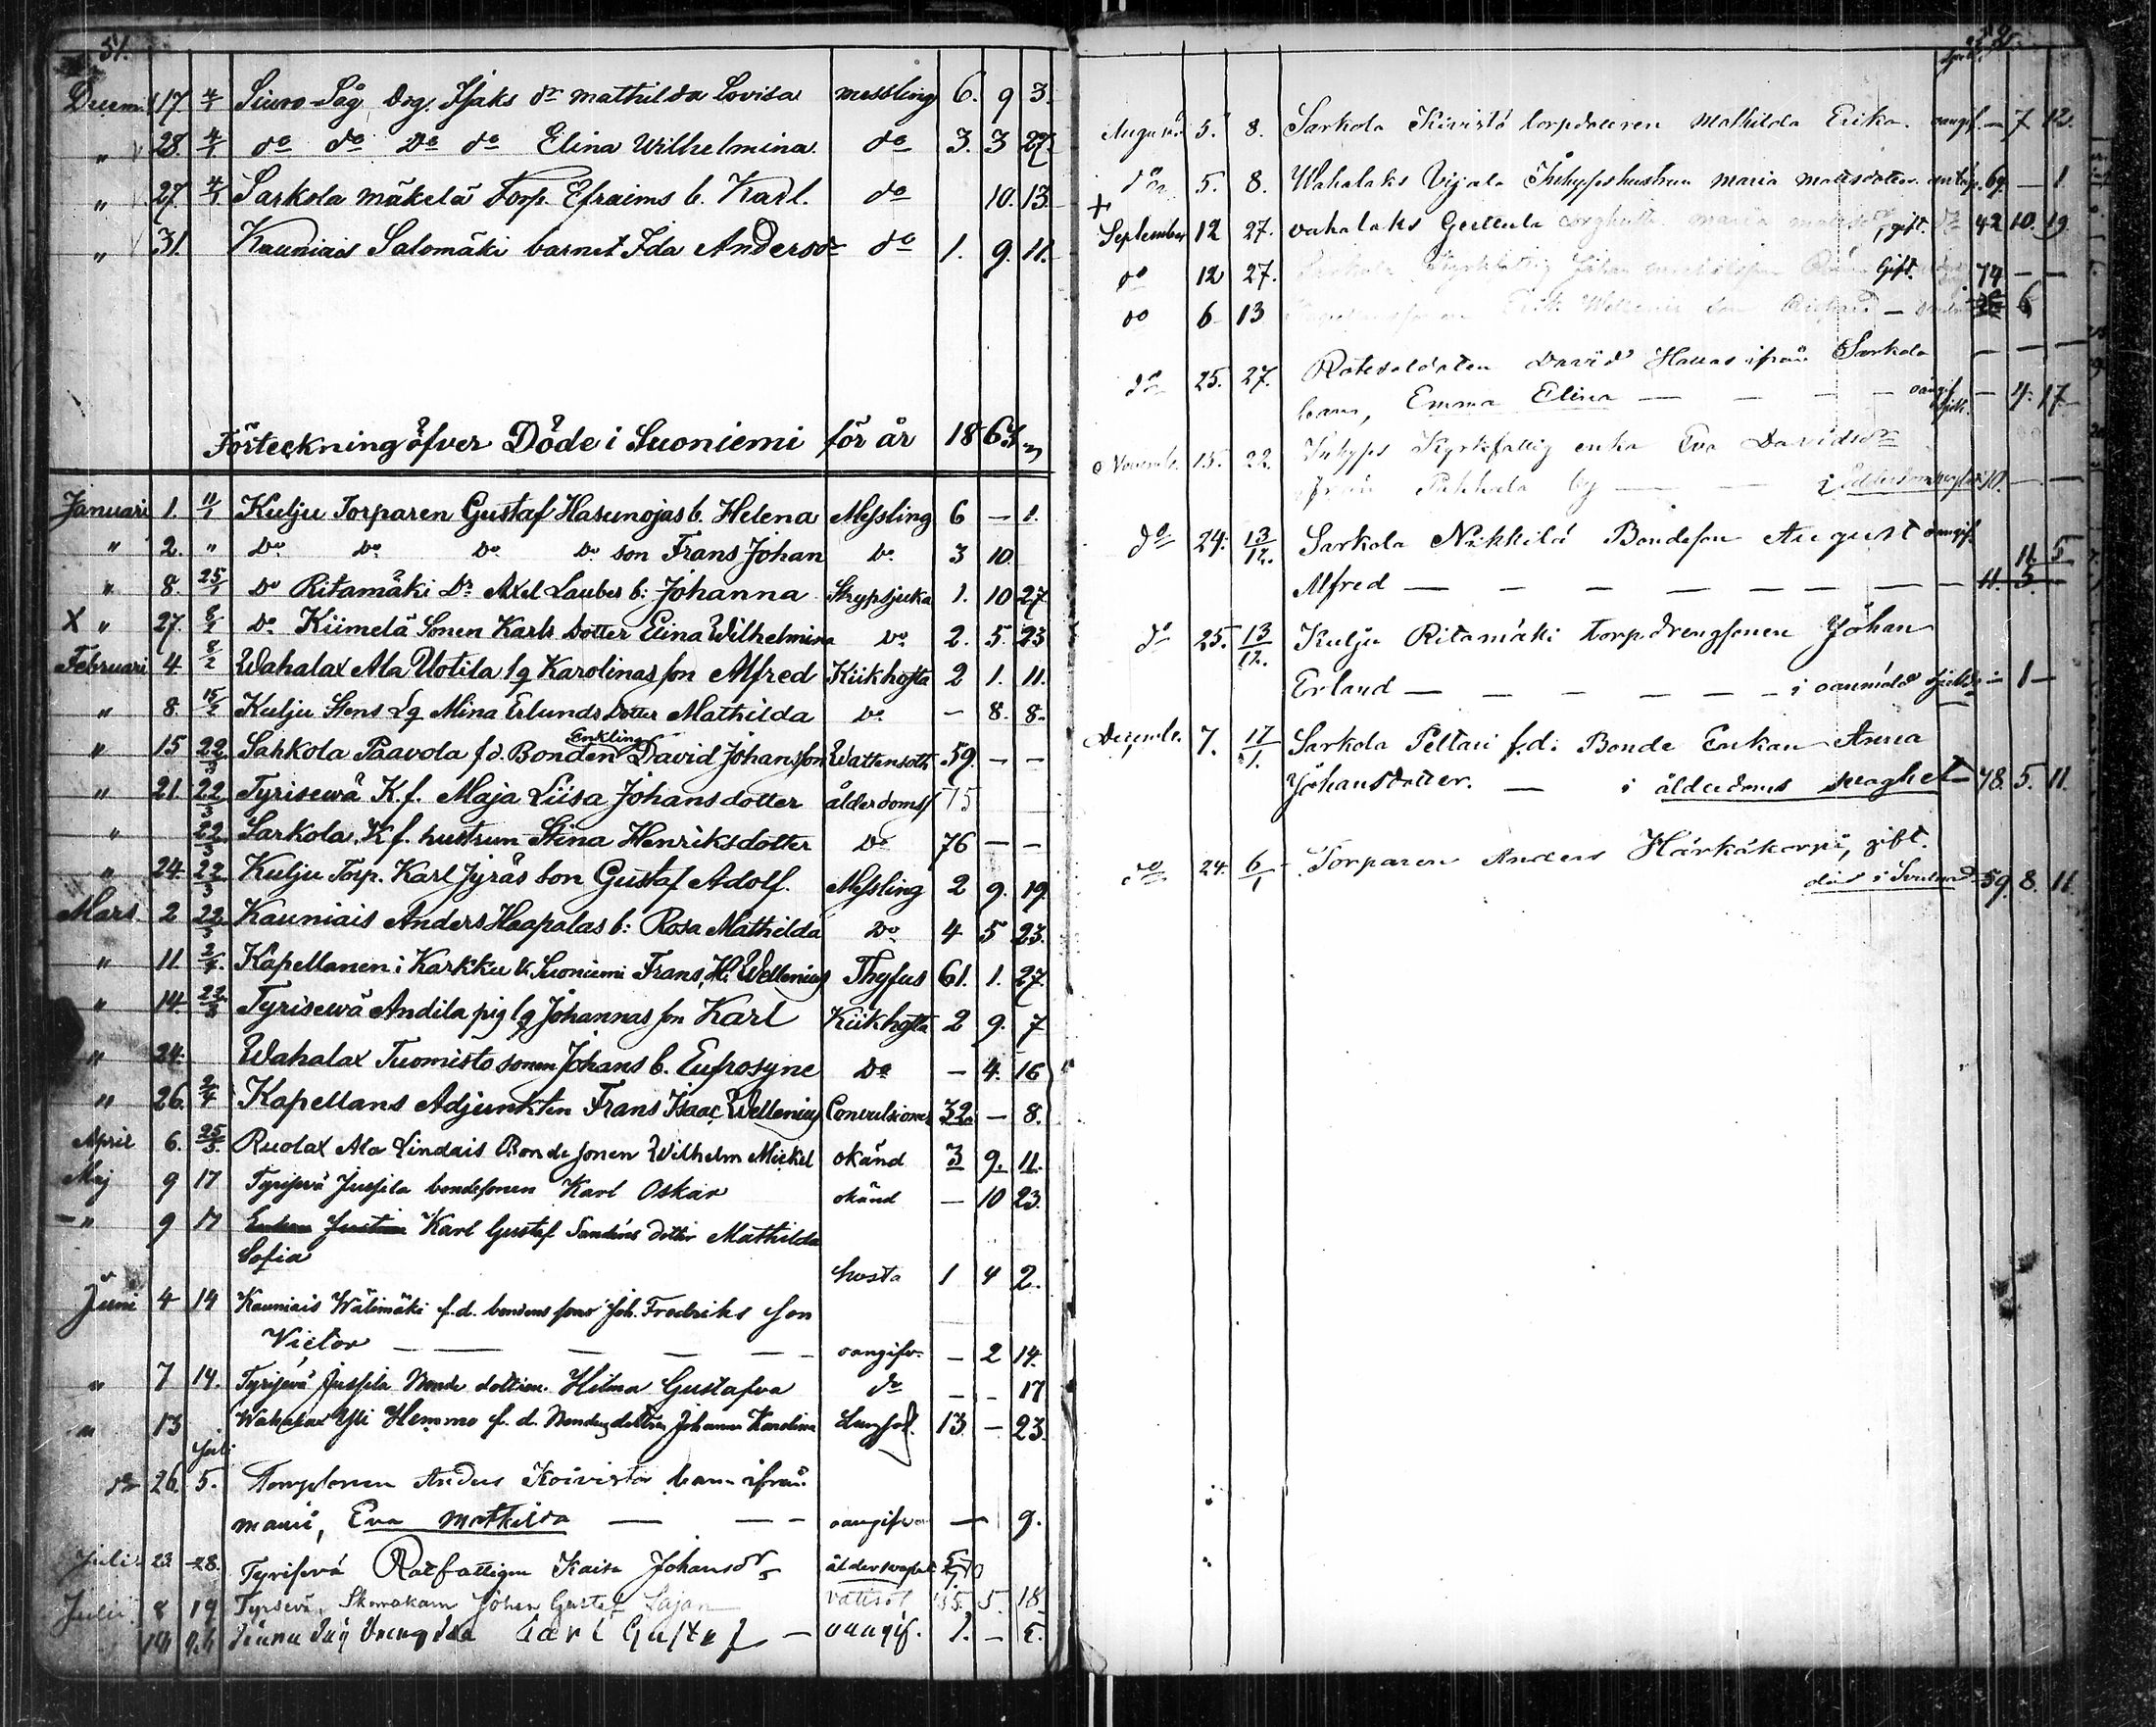 51.
Decemb 17. 4/1 Siuro Såg Drg. Isaks dr Mathilda Lovisa messling 6. 9 3.
" 28. 4/1 do do Do do Elina Wilhelmina. do 3. 3 27.
" 27. 4/1 Sarkola Mäkelä Torp. Efraims b. Karl. do 10. 13.
" 31. Kauniais Salomäki barnet Ida Andersdr do 1. 9. 11.
Förteckning öfver Döde i Suoniemi för år 1867
Januari 1. 11/1 Kulju Torparen Gustaf Hasunojas b. Helena Messling 6 — 1.
" 2. " Do Do Do Do son Frans Johan Do 3 10.
" 8. 25/1 Do Ritamäki Dr Axel Laubes b: Johanna Strypsjuka 1. 10 27
X " 27. 8/2 Do Kiimelä Sonen Karls Dotter Elina Wilhelmina Do 2. 5. 23
Februari 4. 8/2 Wahalax Ala Uotila lg Karolinas son Alfred Kikhosta 2 1. 11.
" 8. 15/2 Kulju Stens Lg Mina Erlunds Dotter Mathilda Do — 8. 8.
Enkling
" 15 22/3 Sarkola Paavola f.d. Bonden David Johansson Wattensoth 59. — —
" 21 22/3 Tyrisewä K.f. Maja Liisa Johansdotter ålderdomss 75
" 22/3 Sarkola K.f. hustrun Stina Henriksdotter Do 76 — —
" 24. 22/3 Kulju Torp. Karl Jyräs Son Gustaf Adolf. Messling 2 9. 19.
Mars. 2 22/3 Kauniais Anders Haapalas b: Rosa Mathilda Do 4 5 23.
" 11 2/4. Kapellanen i Karkku & Suoniemi Frans H. Wellenius Thyfus 61. 1. 27.
" 14. 22/3 Tyrisewä Andila pig lg Johannas son Karl Kikhosta 2 9. 7
" 24. Wahalax Tuomisto sonen Johans b. Eufrosyne Do — 4. 16
" 26. 2/4 Kapellans Adjunkten Frans Isaac Wellenius Convulsioner 32. — 8.
April 6. 25/5. Ruolax Ala Lindais Bondesonen Wilhelm Mickel okänd 3 9. 11.
Maj 9 17 Tyrisevä Jussila bondesonen Karl Oskar okänd — 10 23.
— " 9 17 Karl Gustaf Sandens dotter Mathilda
Sofia hosta 1 4 2.
Juni 4 14 Kauniais Wälimäki f.d. bondens sons Joh. Fredriks son
Victor — — — — — oangifv. — 2 14.
" 7 14. Tyrisevä Jussila Bonde dottren. Hilma Gustafva do — — 17
" 13 Wahalax Yli Hemmo f.d. Bondens dottren Johanna Karolina Lungsot. 13. — 23.
Juli
do 26. 5. Torparen Anders Koivisto barn ifrån
Eva Mathilda — — — oangifven — 9.
Juli 23. 28. Tyrisevä Rotfattigen Kaisa Johansdr ålderdomssvaghet
Juli. 8 19 Tyrisevä. Skomakarn Johan Gustaf Lajan vattsot 55. 5. 18.
19 Karl Gustaf — oangif. 1. —
52.
Augusti 5. 8. Sarkola Kivistö torpdottren Mathilda Erika. oangif. — 7 12.
do 5. 8. Wahalaks Vijala Inhyseshustrun Maria Mattsdotter. 69. — 1.
+
September 12 27. Wahalaks Maria gift. do 42 10. 19.
do 12 27. Sarkola Kyrkfattig Johan Gift. 74 — —
do 6 13 Erik Wellenii son Richard — 6
do 25. 27. Rotesoldaten David Hallas ifrån Sarkola — — —
barn, Emma Elina — — — oangif. sjukd. — 4. 17
Novemb. 15. 22. Inhyses Kyrkfattig enka Eva Davidsdr
ifrån Pakkala by — — i ålderdomssvaghet 70. — —
do 24. 13/12. Sarkola Nikkilä Bondeson August oangif.
Alfred — — — — — — — 11. 5
do 25. 13/12. Kulju Ritamäki torpdrengsonen Johan
Erland — — — — — — i oanmäld sjukd. — 1 —
Decemb. 7. 17/1. Sarkola Peltari f.d. Bonde Enkan Anna
Johansdotter. — i ålderdoms svaghet — 78. 5. 11.
do 24. 6/1 Torparen Anders Härkäkorpi, gift.
död i 59. 8. 11